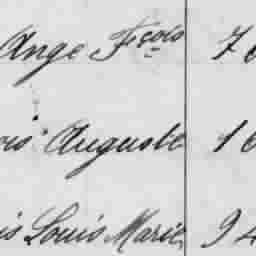 Ange Fçois 7
ois Auguste 16
is Louis Marie 94